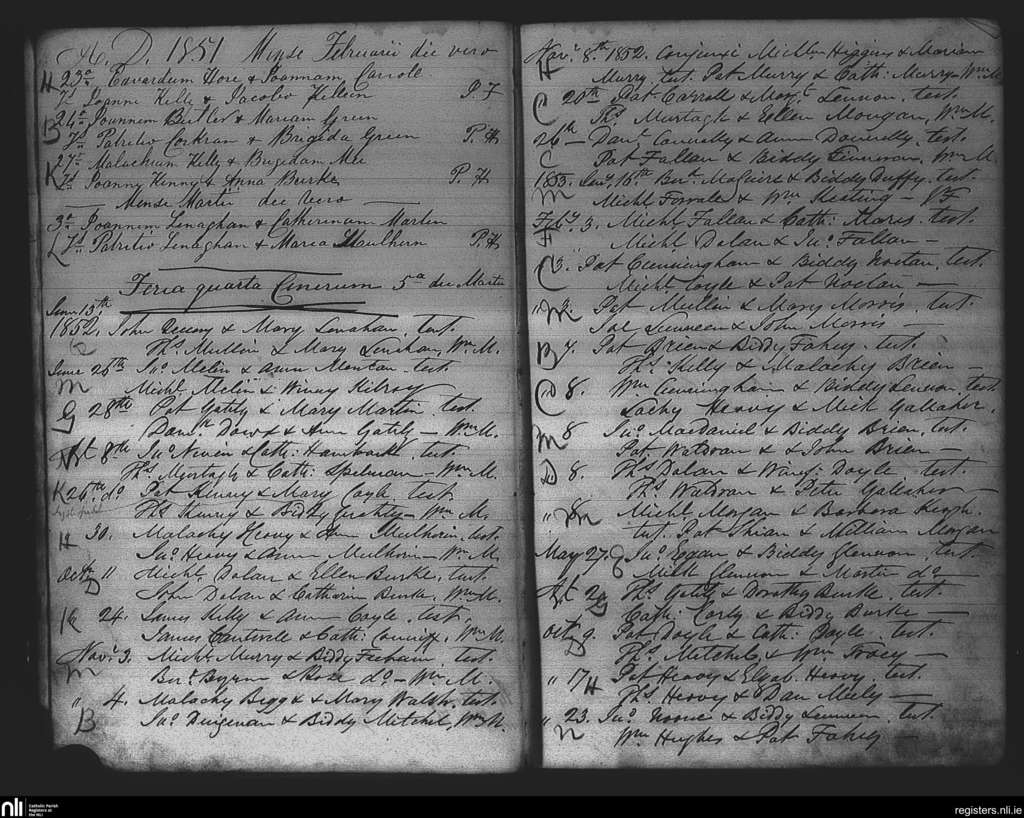 A. D. 1851 Mense Februarii die vero
H 23a Edvardum Hore & Joannam Carrole
Ts Joanne Kelly & Jacobo Killein P. F
B 24a Joannem Butler & Mariam Green
Ts Patritio Corkran & Brigida Green P. H
27a Malachiam Kelly & Brigidam Mee
K Ts Joanny Kenny & Anna Burke P. H
— Mense Martii die vero —
3a Joannem Lenaghan & Catherinam Marten
L Ts Patritio Lenaghan & Maria Mulhern P. H
Feria quarta Cinerum 5a die Martii
June 13th
1852. John & Mary Lenahan, test.
Ths Mullin & Mary Lenihan, Wm M.
June 26th Jno Melin & Ann Mentan test.
M Michl Melin & Winny Kilroy
G 28th Pat Gately & Mary Martin, test.
Danl Dowd & Ann Gately — Wm M.
8th Jno Niven & Cath: test.
Ths Murtagh & Cath: Spelman — Wm M.
K 26th do Pat Kenny & Mary Coyle, test.
Ths Murry & Biddy — Wm M.
H 30. Malachy Heavy & Ann Mulhorin, test.
Jno Heavy & Ann Mulhorin — Wm M.
Octr 11 Michl Dolan & Ellen Burke, test.
D John Dolan & Catharin Burke, Wm M.
K 24. James Kelly & Ann Coyle, test.
James Cantwell & Cath: Wm M.
Novr 3. Michl Murry & Biddy Feeham, test.
M Bert Byrne & Rose do — Wm M.
" 4. Malachy Beggs & Mary Walsh, test.
B Jno Deigenan & Biddy Mitchel, Wm M.
Novr 8th 1852. Conjunxi Michlm Higgins & Mariam
H Murry, test. Pat Murry & Cath: Murry — Wm M.
C 20th Pat Carroll & Margt Lennon, test.
Ths Murtagh & Ellen Mongan, Wm M.
26th — Danl Connelly & Ann Donnelly, test.
C Pat Fallan & Biddy Wm M.
1853. Jany 16th Bert Maguire & Biddy Duffy, test.
M Michl & Wm Keating —
Feby 3. Michl Fallan & Cath: test.
F Michl Dolan & Jno Fallan —
C 3. Pat Cunningham & Biddy Noctan, test.
Michl Coyle & Pat Noctan —
M Pat Mullin & Mary Morris, test.
Pat Lenneen & John Morris —
B 7. Pat Brien & Biddy Fahey, test.
Ths Kelly & Malachy Brien —
C 8. Wm Cunningham & Biddy Lennon, test.
Lacky Heavy & Mick Gallaher.
M 8 Jno MacDaniel & Biddy Brien, test.
Pat Waldran & John Brien —
D 8. Ths Dolan & Winy: Doyle test.
Ths Waldran & Peter Gallaher —
" 8. M Michl Morgan & Barbara Keogh.
test. Pat & William Morgan
May 27. Jno Eggan & Biddy Glennon, test.
Michl Glennon & Martin do —
G Ths Gately & Dorothy Burke, test.
Cath: & Biddy Burke —
Octr 9. Pat Doyle & Cath: Doyle, test.
D Ths Mitchel & Wm Tracy —
" 17 H Pat Heavy & Elizab. Heavy, test.
Ths Heavy & Dan Mealy —
" 23. Jno Noone & Biddy Lenneen, test.
N Wm Hughes & Pat Fahey —
nli Catholic Parish
Registers at
the NLI
registers.nli.ie